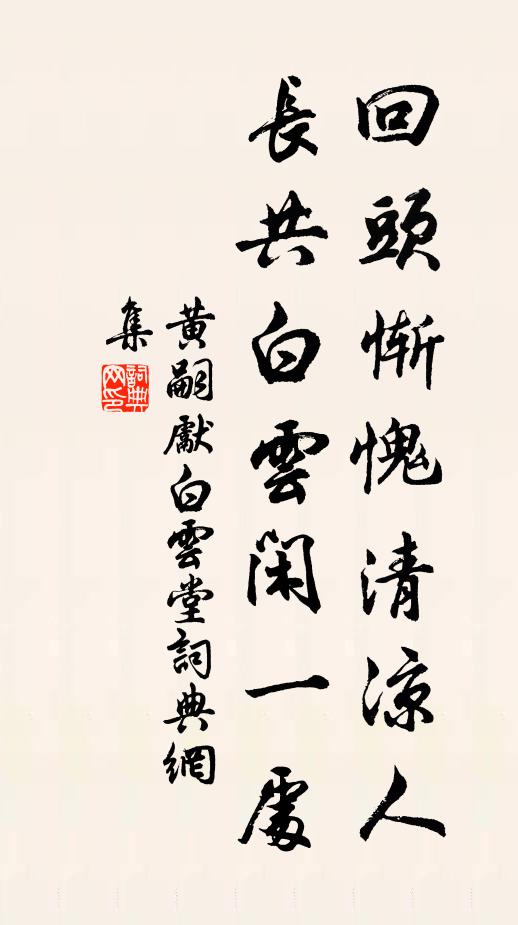 回頭慚愧清涼人
長共白雲閑一處
黃嗣獻白雲堂詞典網
集
詞典
网印